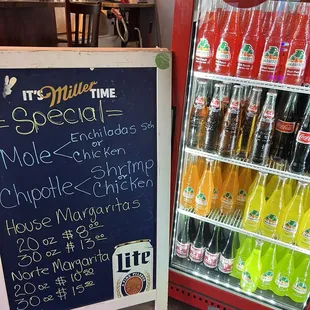 IT'S Miller TIME
=Special=
Mole < Enchiladas
or
Chicken
Chipotle < Shrimp
or
Chicken
House Margaritas
20 oz $ 8
30 oz $ 13
Norte Margarita
20 oz $ 10
30 oz $ 15
Lite